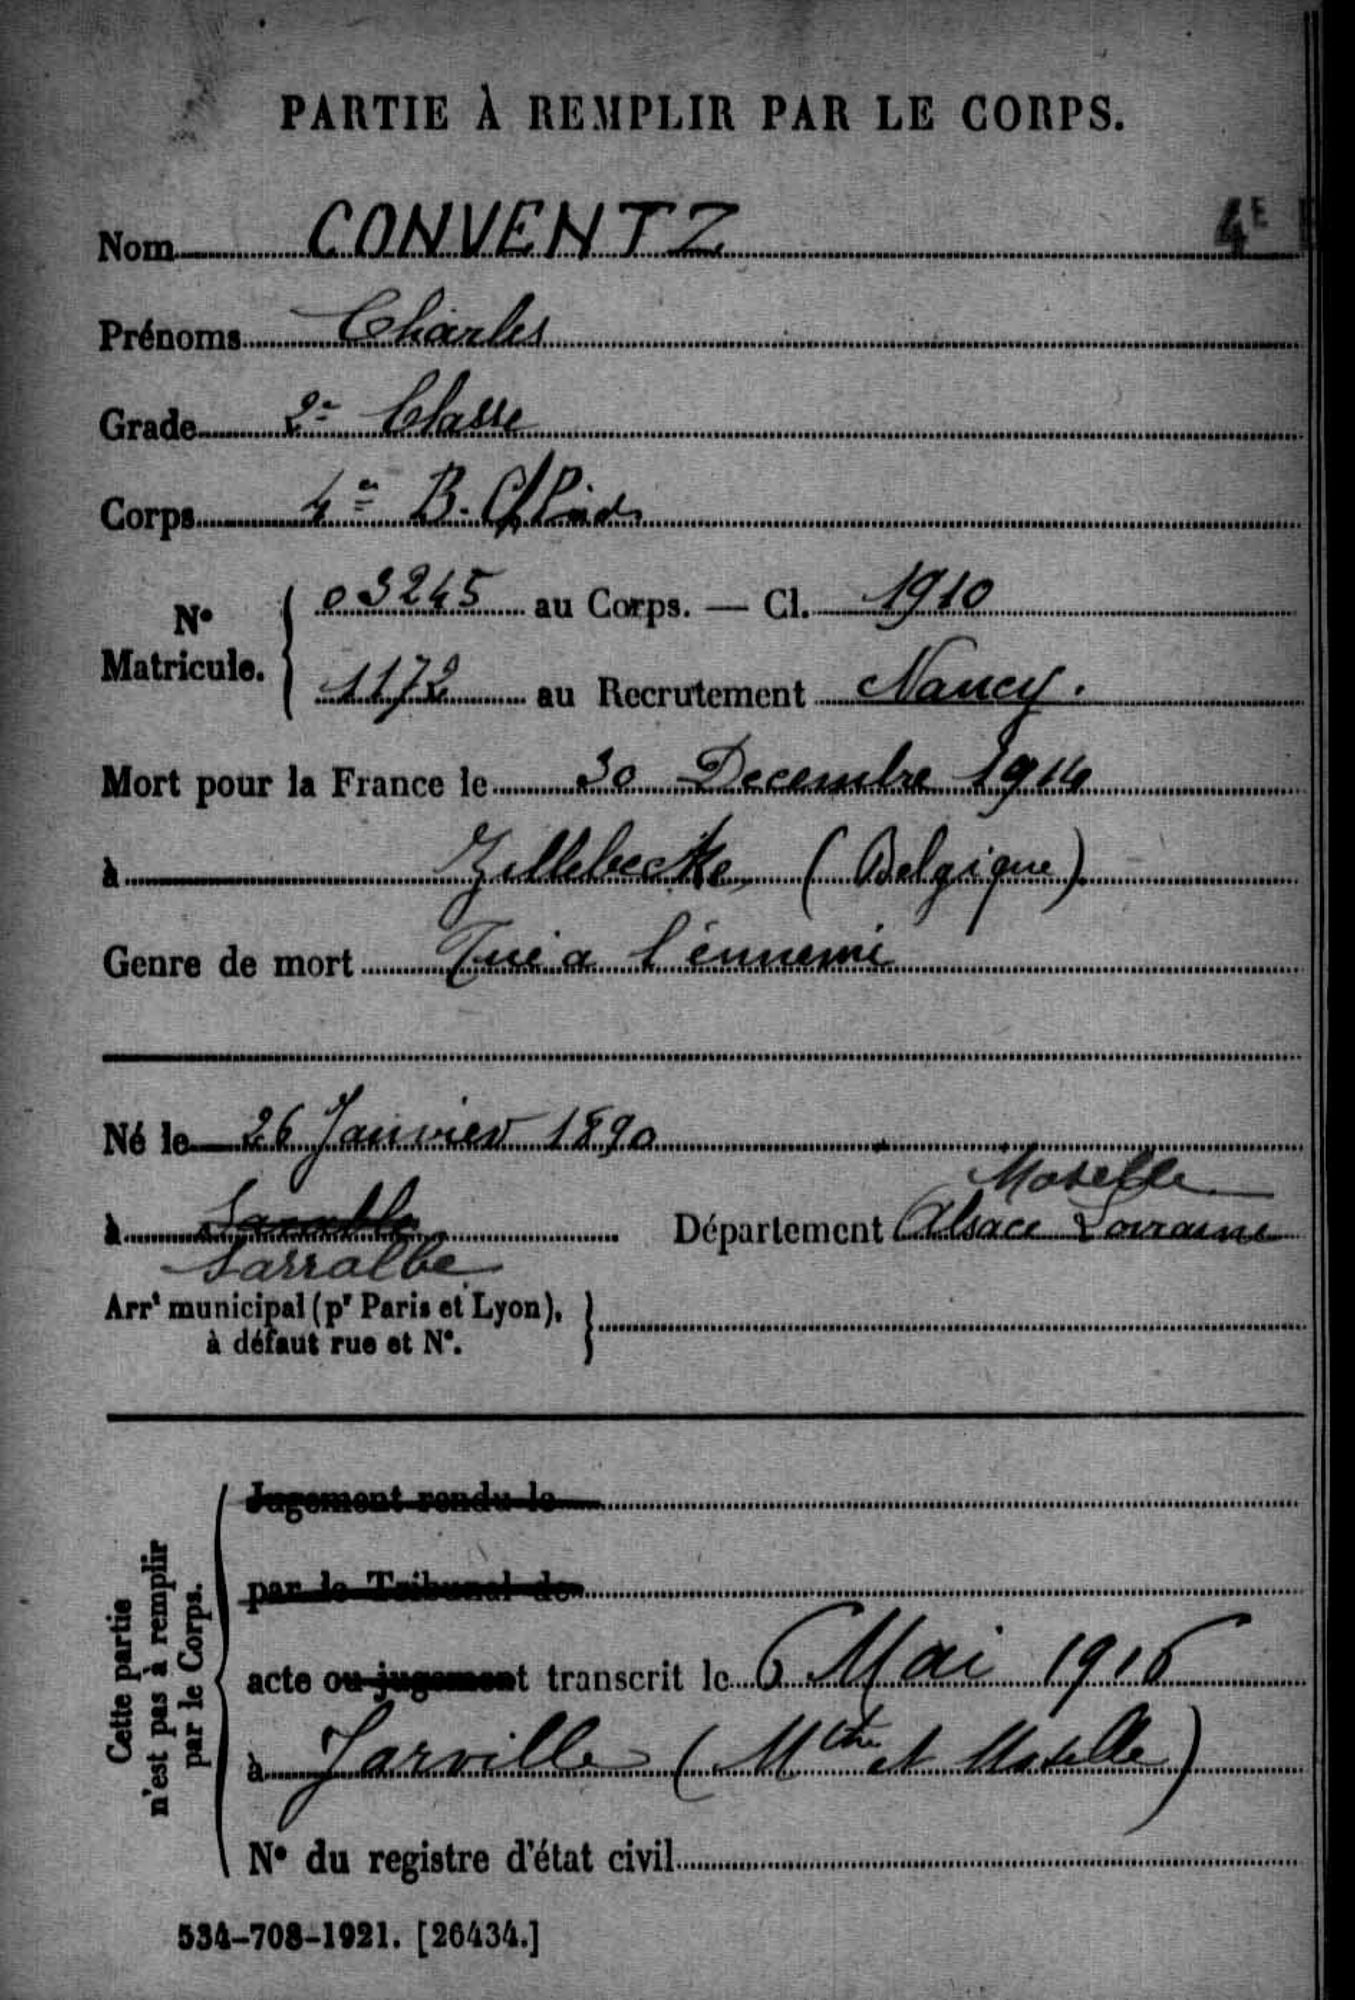 PARTIE À REMPLIR PAR LE CORPS.
4E
Nom CONVENTZ
Prénoms Charles
Grade 2e Classe
Corps 4e B. Ch. Pied
N° Matricule. 03245 au Corps. — Cl. 1910
1172 au Recrutement Nancy.
Mort pour la France le 30 Decembre 1914
à Zillebecke (Belgique)
Genre de mort Tué a l'énnemi
Né le 26 Janvier 1890
Moselle
à Département Alsace Lorraine
Sarralbe
Arrt municipal (pr Paris et Lyon),
à défaut rue et N°.
Cette partie
n'est pas à remplir
par le Corps.
Jugement rendu le
par le Tribunal de
acte ou jugement transcrit le 6 Mai 1916
à Jarville (Mthe et Moselle)
N° du registre d'état civil
534-708-1921. [26434.]